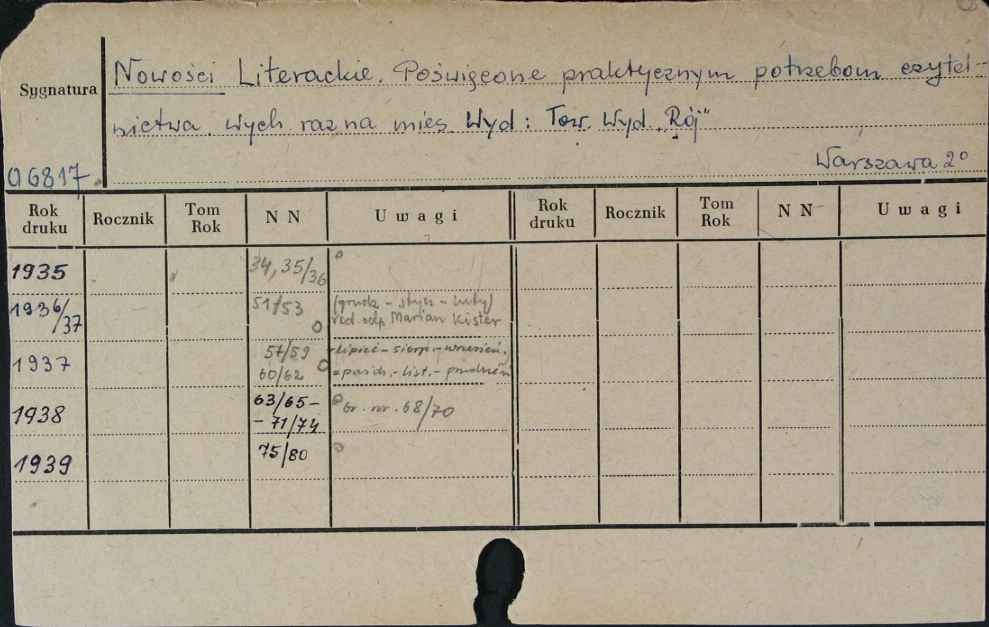 Nowości Literackie. Poświęcone praktycznym potrzebom czytel-
Sygnatura
nictwa. Wych. raz na mies. Wyd: Tow. Wyd. „Rój"
Warszawa 2°
06817
Rok druku Rocznik Tom Rok N N Uwagi Rok druku Rocznik Tom Rok N N Uwagi
1935 34, 35/36
1936/37 51/53 (grudz - stycz - luty)
red. odp. Marian Kister
1937 57/59 lipiec - sierp. - wrzesień.
60/62 paźdz. - list. - grudzień
1938 63/65 -
- 71/74 br. nr. 68/70
1939 75/80